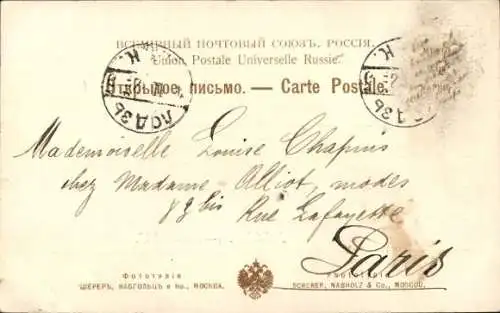 ВСЕМІРНЫЙ ПОЧТОВЫЙ СОЮЗЪ. РОССІЯ.
Union Postale Universelle Russie.
Открытое письмо. — Carte Postale.
ЛОДЗЬ
ЛОДЗЬ
Mademoiselle Louise Chapuis
chez Madame Alliot, modes
82 bis Rue Lafayette
Paris
ФОТОТИПІЯ
ШЕРЕРЪ, НАБГОЛЬЦЪ и Ко., МОСКВА.
PHOTOTYPIE
SCHERER, NABHOLZ & Co., MOSCOU.